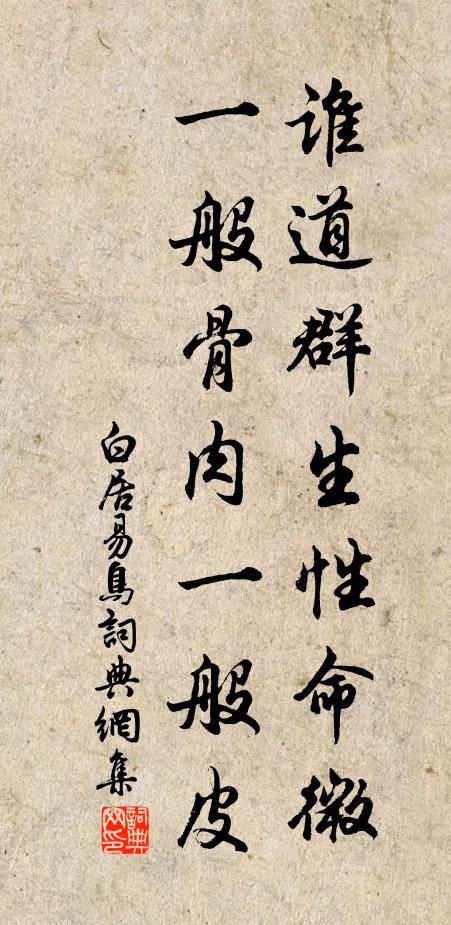 谁道群生性命微
一般骨肉一般皮
白居易鳥詞典網集
詞典网印